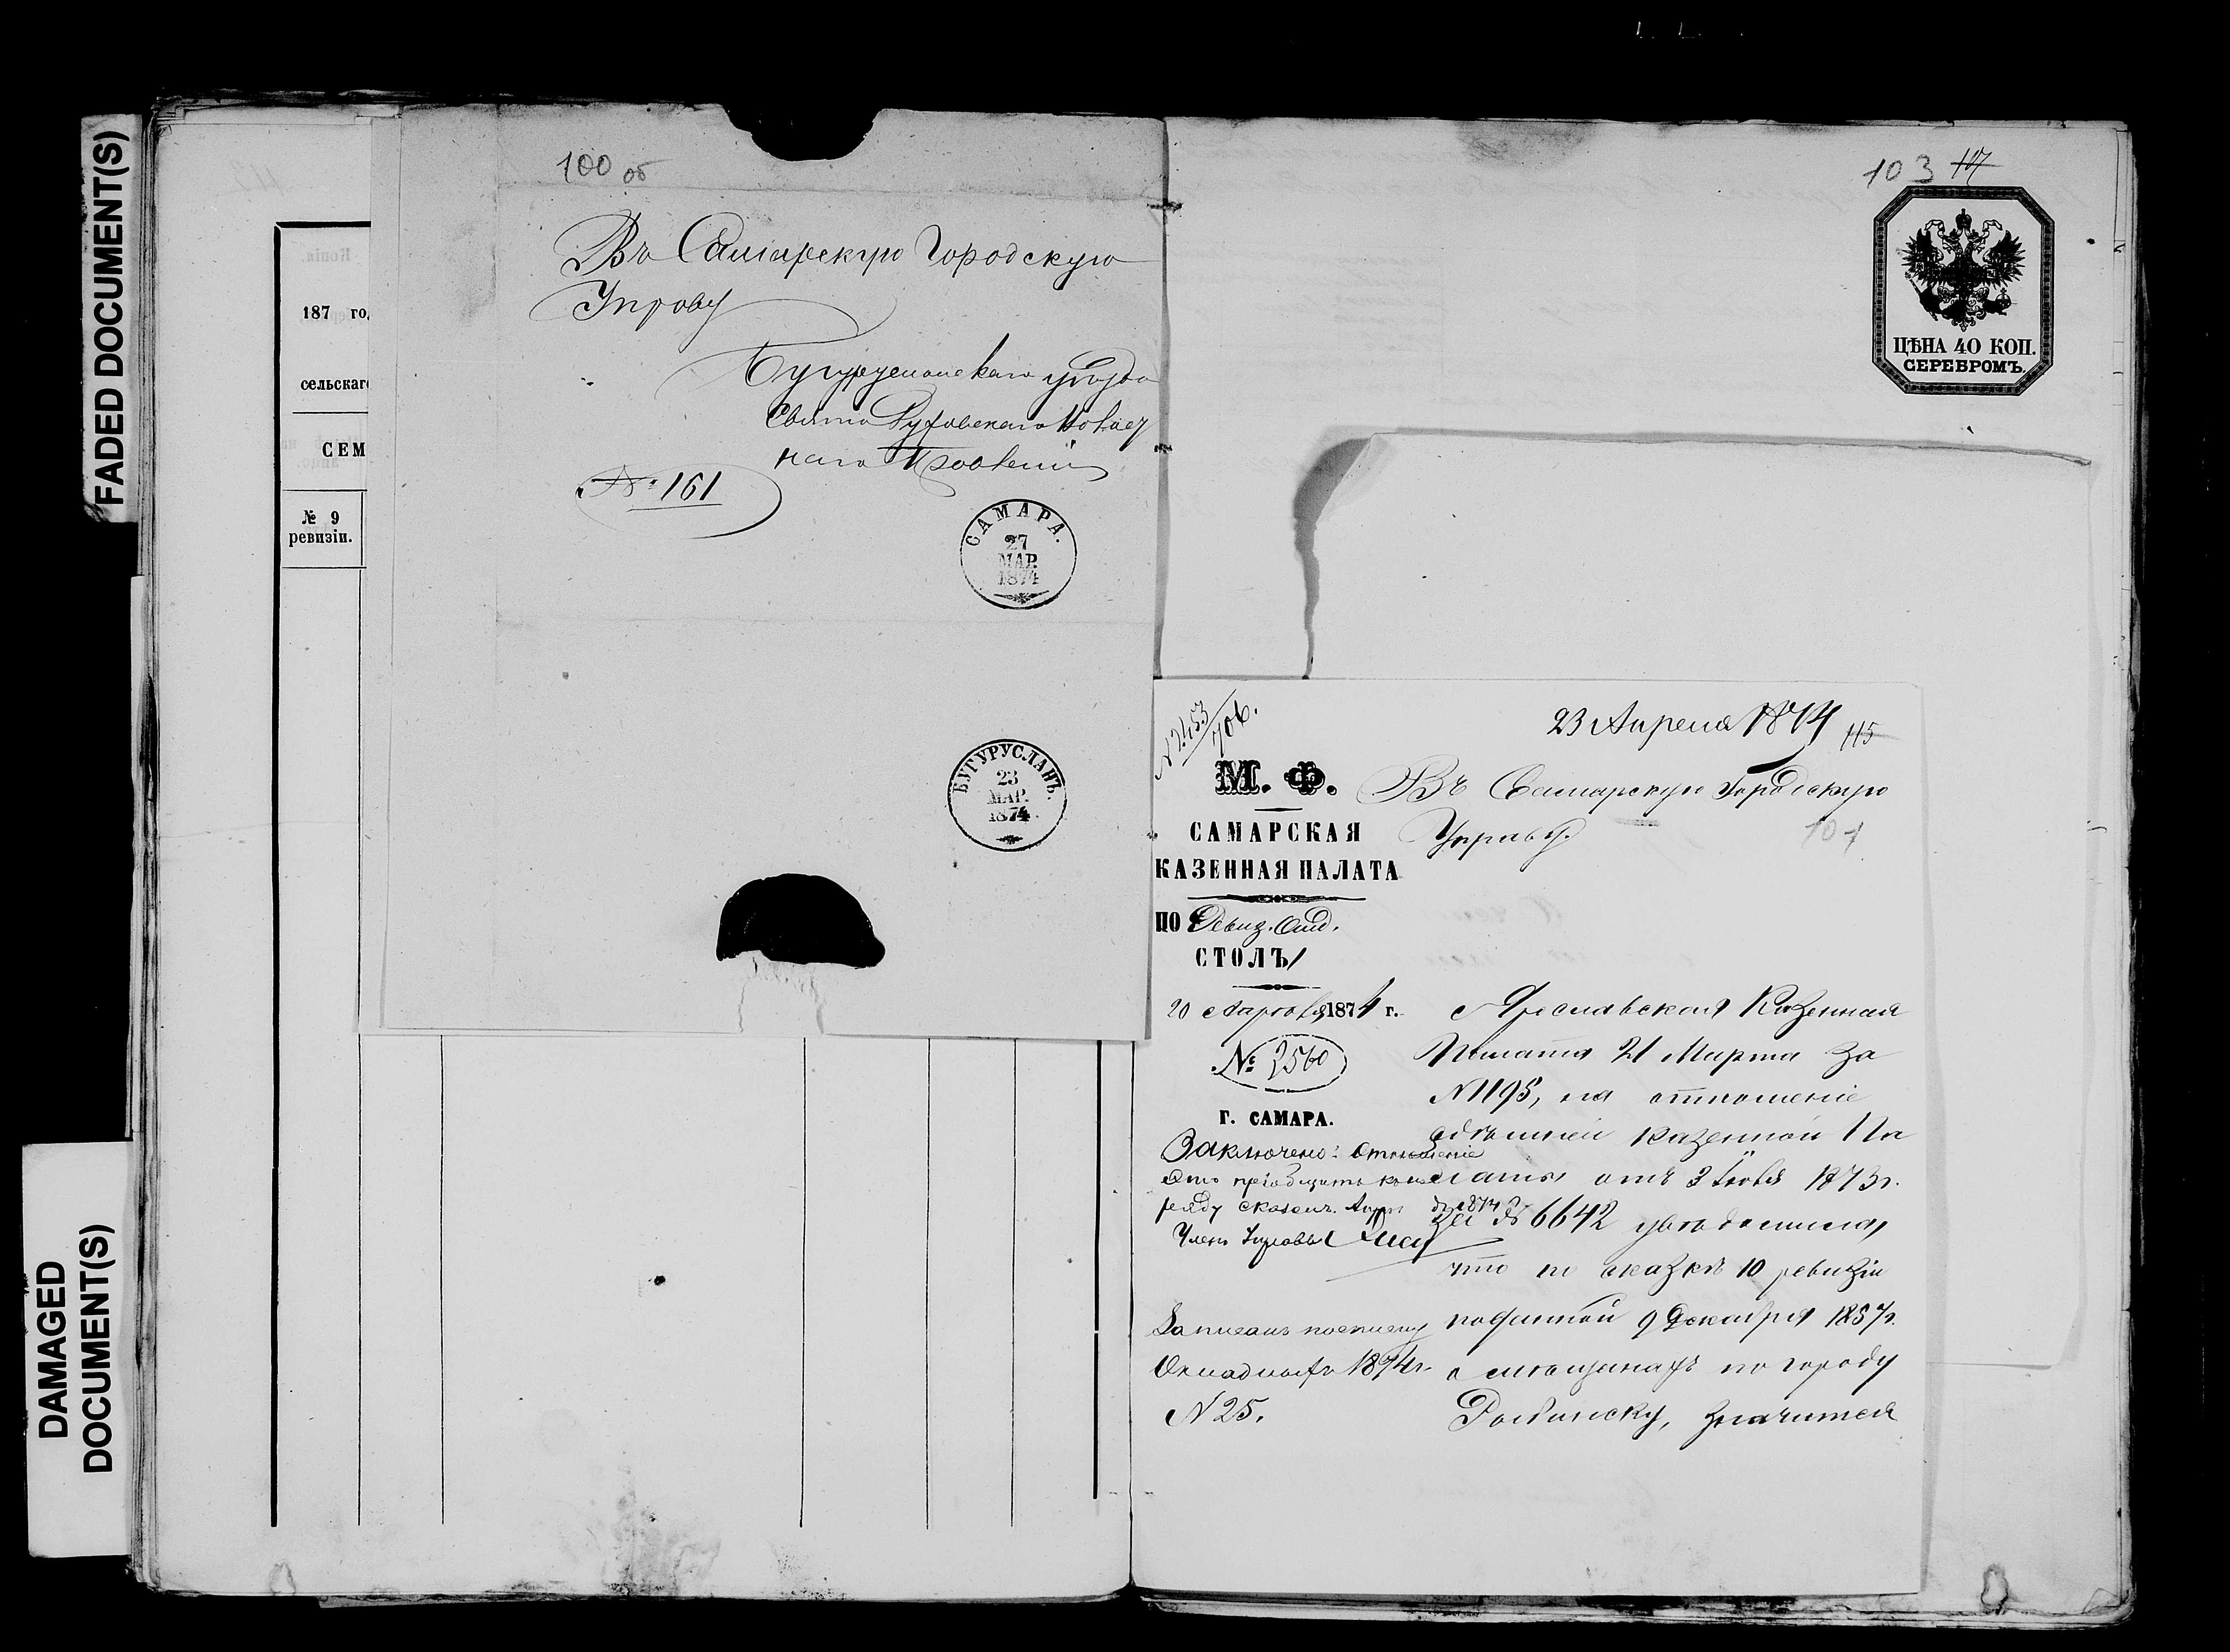 FADED DOCUMENT(S)
DAMAGED
DOCUMENT(S)
187 го
сельскаго
СЕМ
№ 9
ревизіи.
100 об
Въ Самарскую Городскую
Управу
Бугурусланскаго уѣзда
Свято Духовскаго Волост
наго Правленія
№ 161
САМАРА.
27
МАР.
1874
БУГУРУСЛАНЪ.
23
МАР.
1874
103 107
ЦѢНА 40 КОП.
СЕРЕБРОМЪ.
N 2453
706.
23 Апреля 1874
115
М. Ф.
САМАРСКАЯ
КАЗЕННАЯ ПАЛАТА
ПО Ревиз. Отд.
СТОЛЪ 1
20 Апрѣля 1874 г.
№ 2560
Г. САМАРА.
Въ Самарскую Городскую
Управу.
104
Заключено: Отношеніе
это пріобщить къ
ряду сказокъ. Апр. 1874 г.
Членъ Управы
Записанъ
Окладныхъ 1874 г.
N 25.
Ярославская Казенная
Палата 21 Марта за
N 1195, на отношеніе
здѣшней Казенной Па
латы отъ 3 Іюля 1873 г.
за № 6642 увѣдомила,
что по сказкѣ 10 ревизіи
поданной 9 Декабря 1857 г.
о мѣщанахъ по городу
Рыбинску, значится